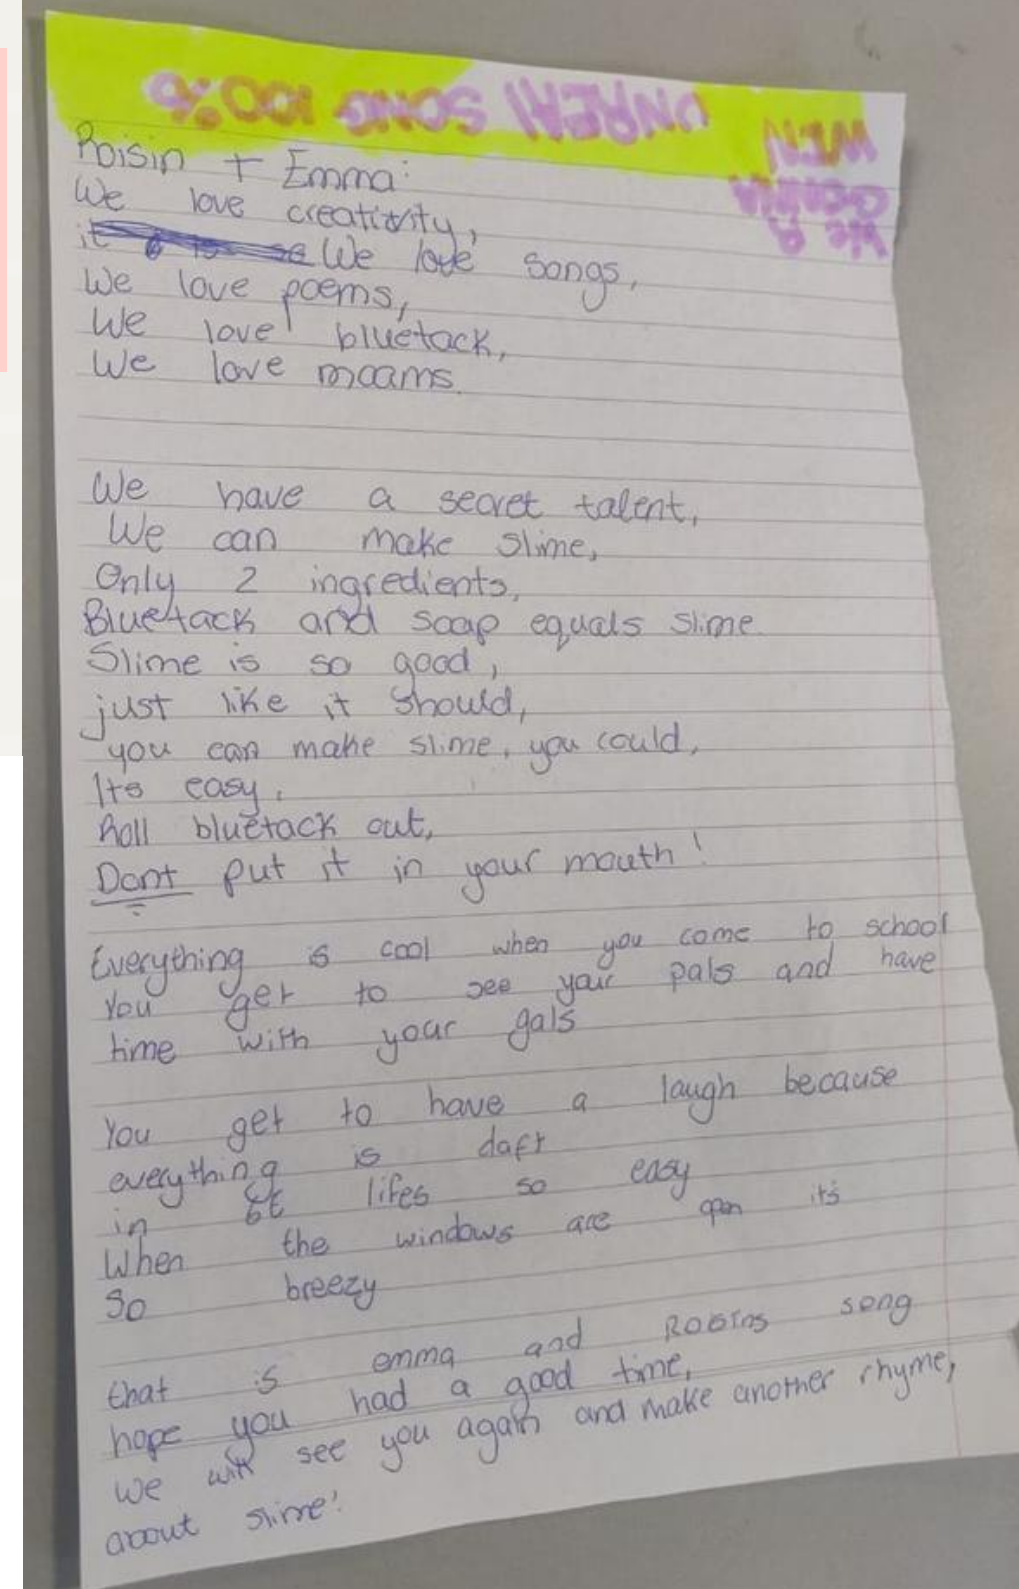 UNREAL SONG 100%
We R
GONNA
WIN
Roisin + Emma:
We love creativity,
it We love songs,
We love poems,
We love bluetack,
We love maams.
We have a secret talent,
We can make slime,
Only 2 ingredients,
Bluetack and soap equals slime.
Slime is so good,
just like it should,
you can make slime, you could,
Its easy,
Roll bluetack out,
Dont put it in your mouth!
Everything is cool when you come to school
You get to see your pals and have
time with your gals
You get to have a laugh because
everything is daft
in 6E lifes so easy
When the windows are open it's
So breezy
that is emma and Roisins song
hope you had a good time,
we will see you again and make another rhyme,
about slime!